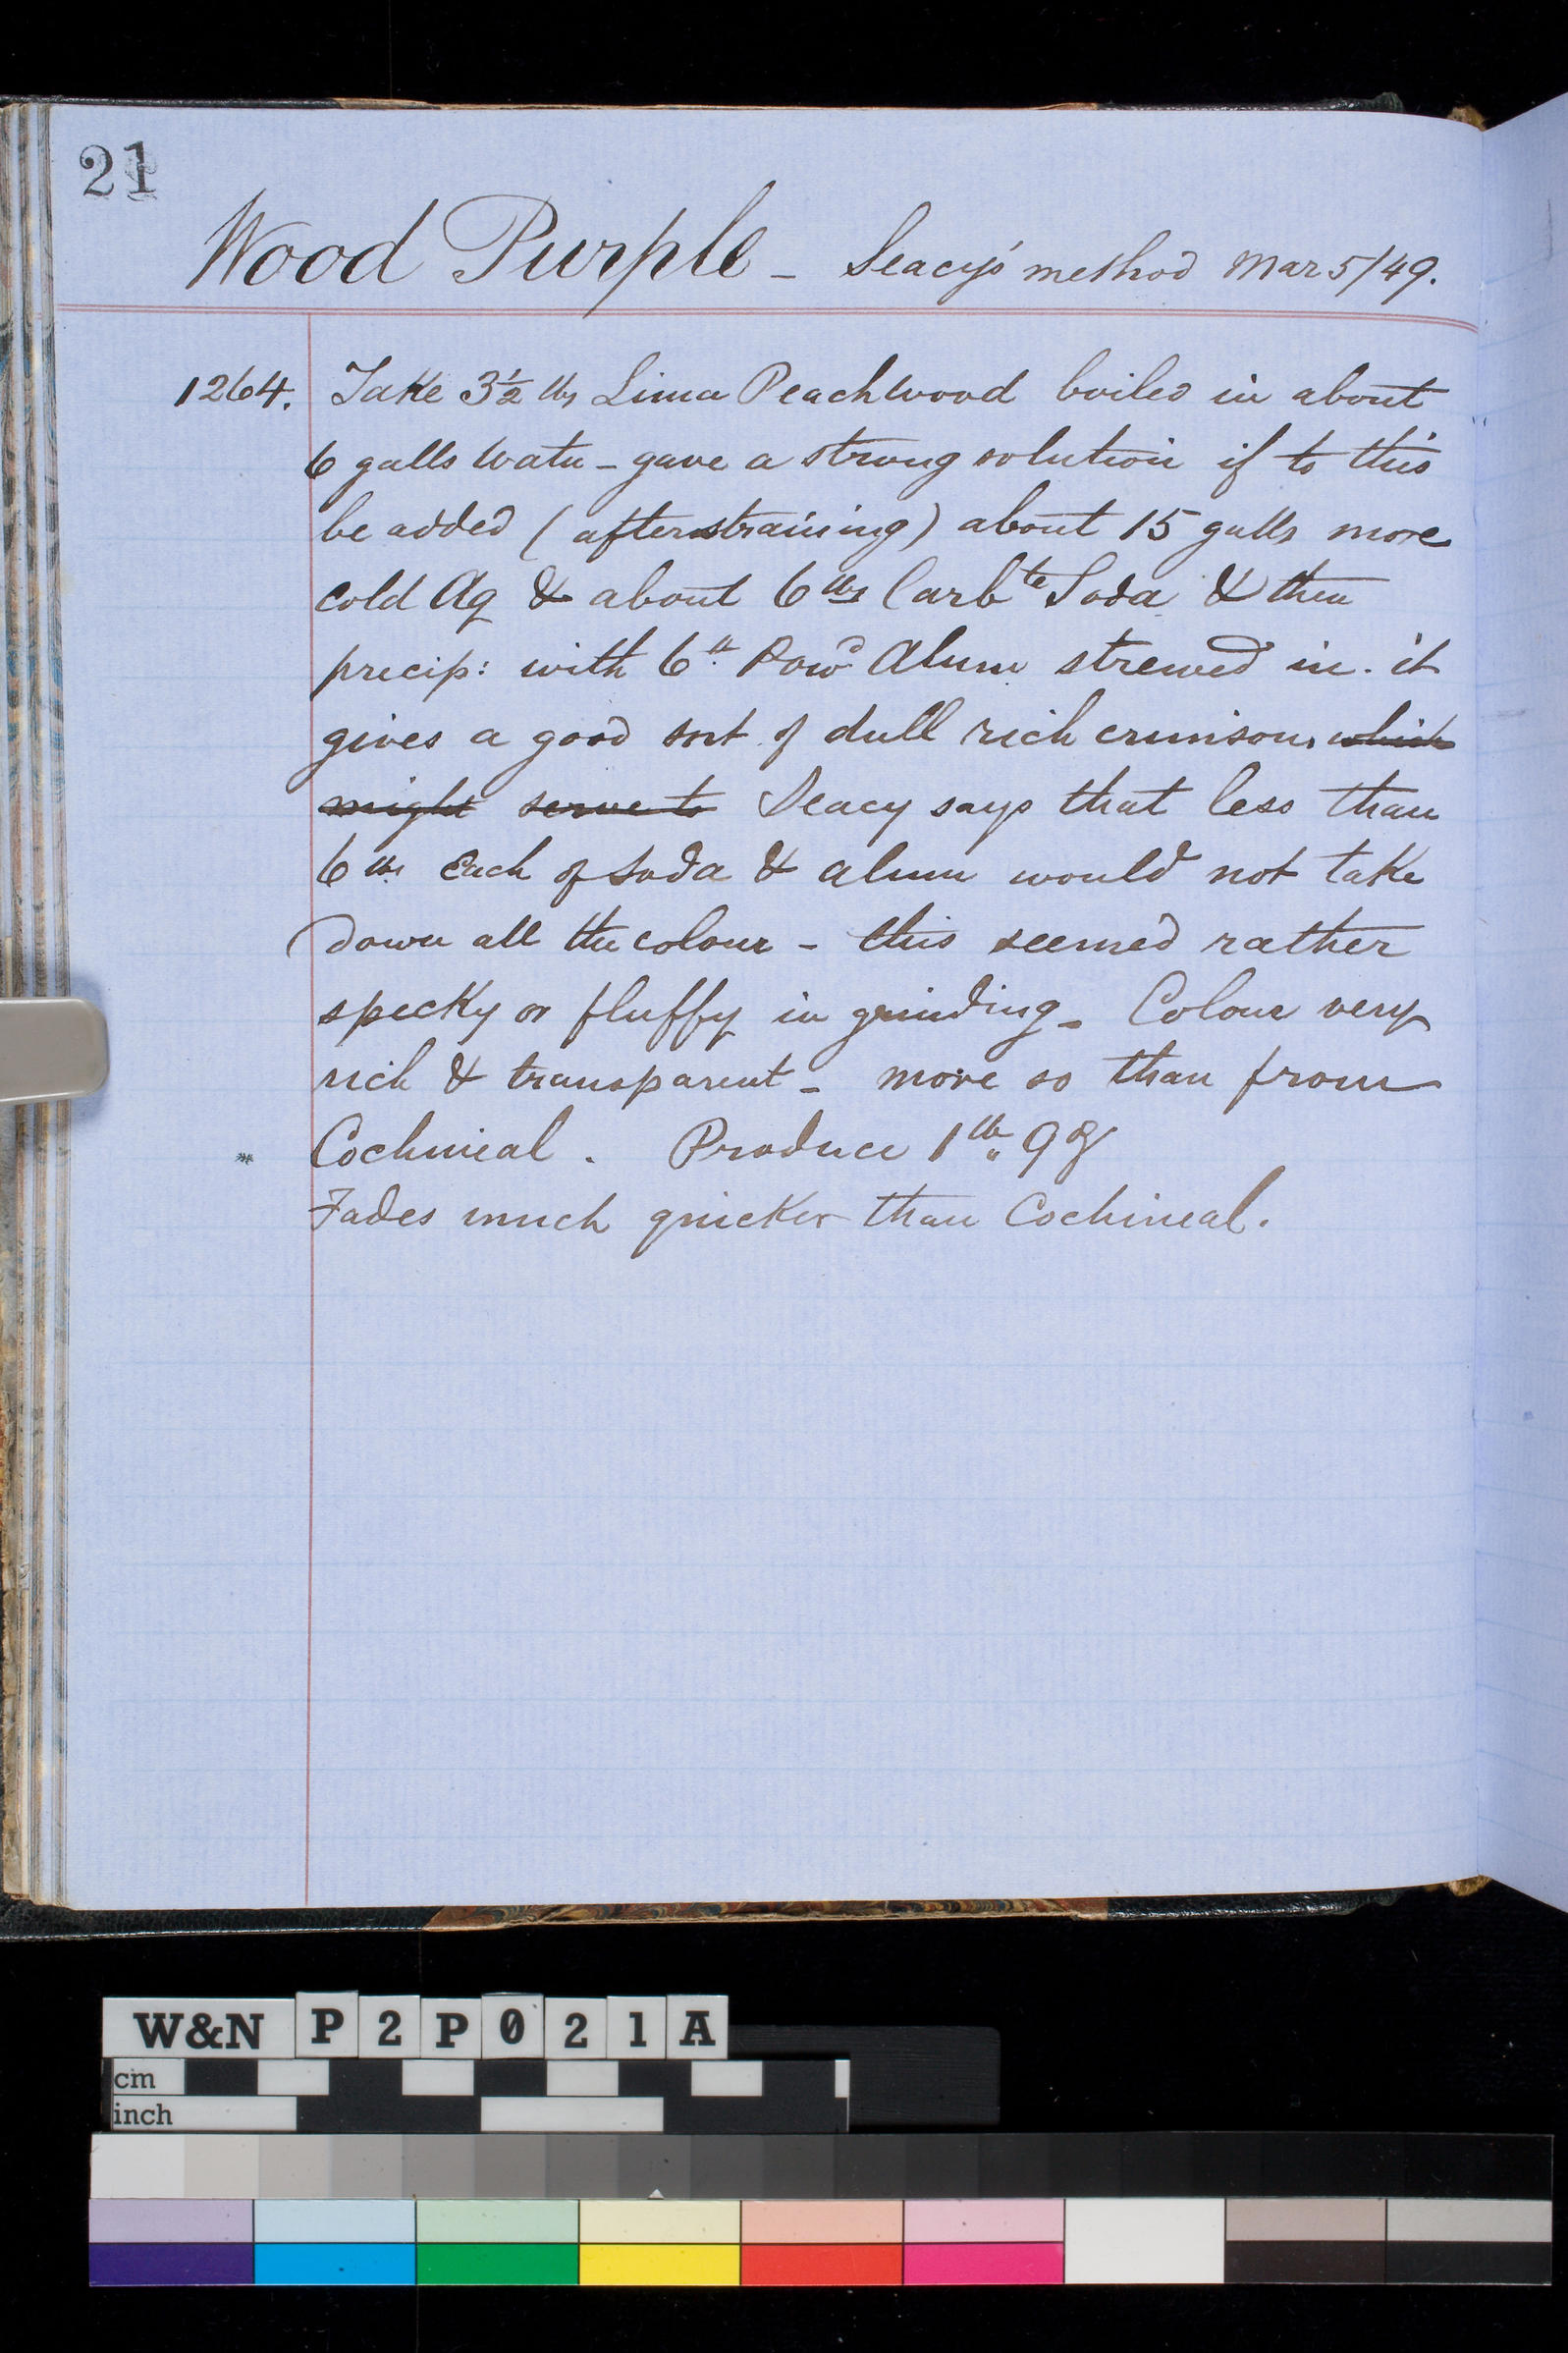 21
Wood Purple - Seacy's method Mar 5/49.
1264. Take 3½ lbs Lima Peachwood boiled in about
6 galls Water - gave a strong solution if to this
be added (after straining) about 15 galls more
cold Aq & about 6 lbs Carbte Soda & then
precip: with 6 lb Powd Alum strewed in. it
gives a good sort of dull rich crimson, which
might serve to Seacy says that less than
6 lbs Each of Soda & alum would not take
down all the colour - this seemed rather
specky or fluffy in grinding - Colour very
rich & transparent - more so than from
* Cochineal. Produce 1 lb 9 oz
Fades much quicker than Cochineal.
W&N P2P021A
cm
inch